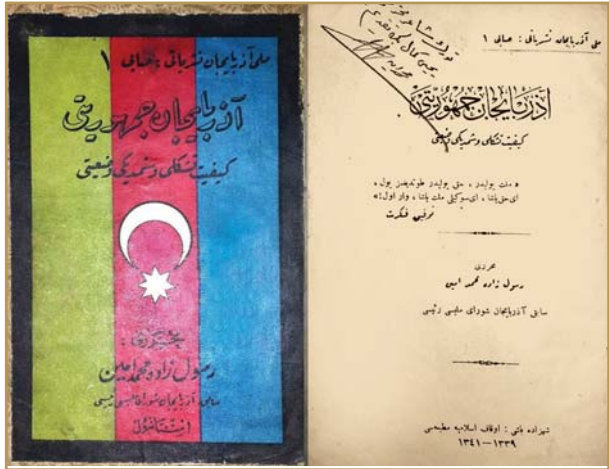 ملی آذربایجان نشریاتی : صایی ۱
آذربایجان جمهوریتی
کیفیت تشکلی و شمدیکی وضعیتی
محرری :
رسول زاده محمد امین
سابق آذربایجان شورای ملیسی رئیسی
استانبول
یحیی کمال بکه تقدیم
ملی آذربایجان نشریاتی : صایی ۱
اذربایجان جمهوریتی
کیفیت تشکلی وشمدیکی وضعیتی
« ملت یولیدر ، حق یولیدر طوتدیغمز یول ،
ای حق یاشا ، ای سوکیلی ملت یاشا ، وار اول! »
توفیق فکرت
محرری
رسول زاده محمد امین
سابق آذربایجان شورای ملیسی رئیسی
شهزاده باشی : اوقاف اسلامیه مطبعه‌سی
۱۳۳۹—۱۳۴۱